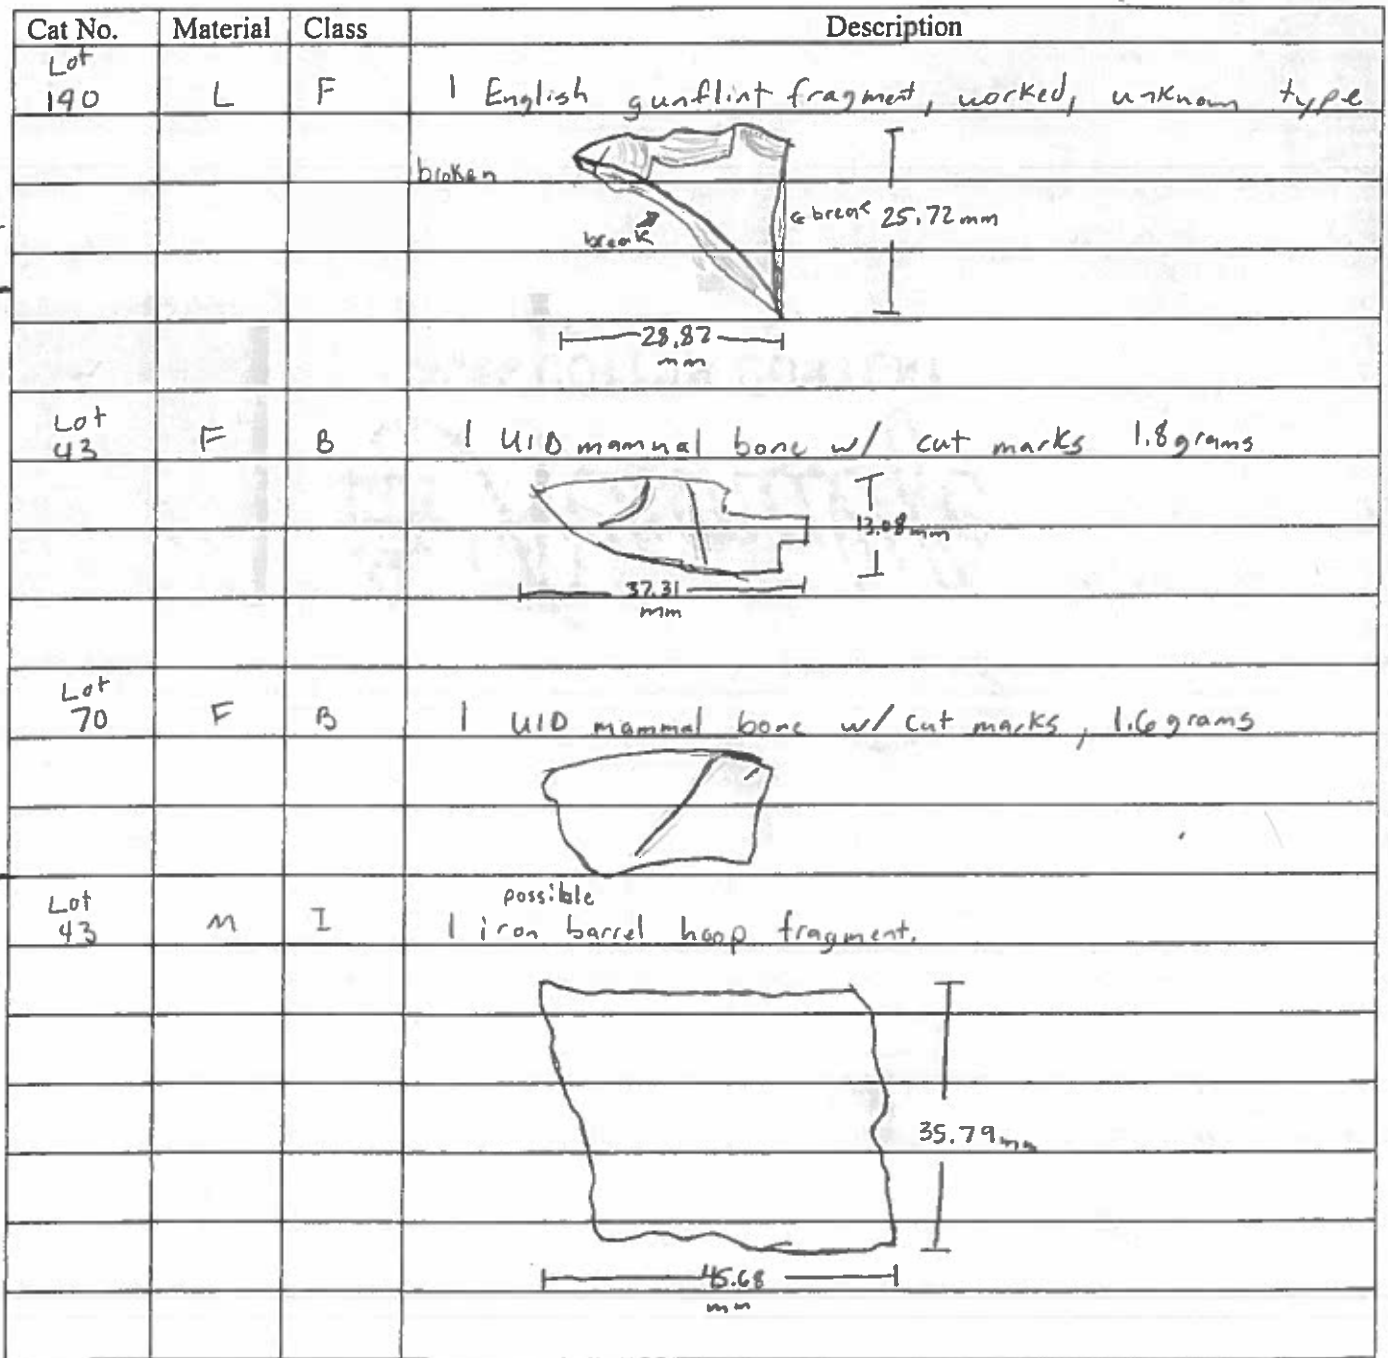 Cat No. Material Class Description
Lot
190 L F 1 English gunflint fragment, worked, unknown type
broken
break
← break 25.72 mm
28.82
mm
Lot
43 F B 1 UID mammal bone w/ cut marks 1.8 grams
13.08 mm
37.31
mm
Lot
70 F B 1 UID mammal bone w/ cut marks, 1.6 grams
possible
Lot
43 M I 1 iron barrel hoop fragment.
35.79 mm
45.68
mm